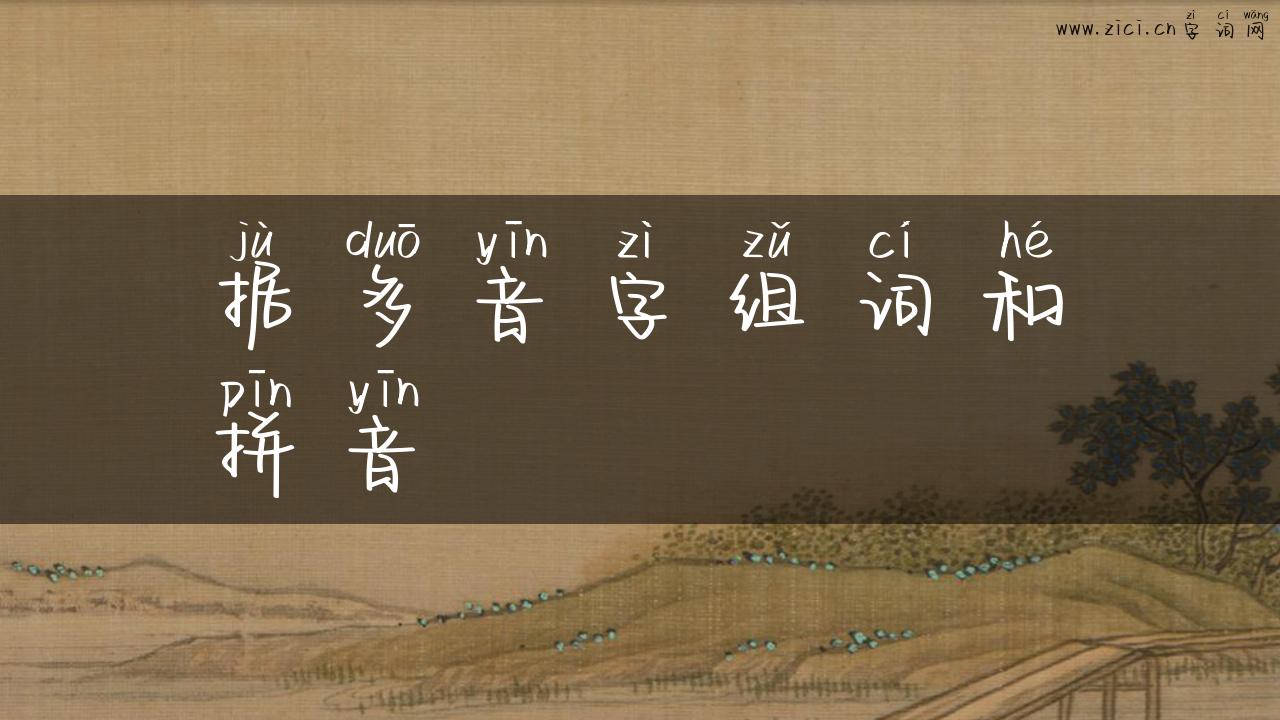 zì cí wǎng
www.zici.cn字词网
jù duō yīn zì zǔ cí hé
据多音字组词和
pīn yīn
拼音